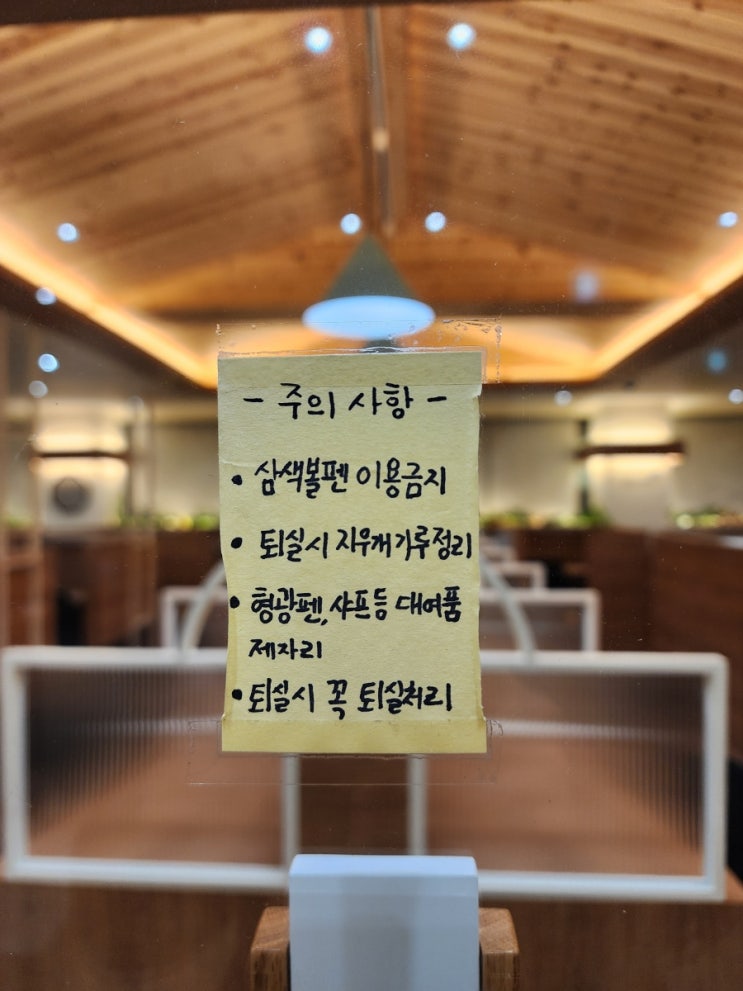 - 주의 사항 -
• 삼색볼펜 이용금지
• 퇴실시 지우개가루정리
• 형광펜, 샤프등 대여품
제자리
• 퇴실시 꼭 퇴실처리